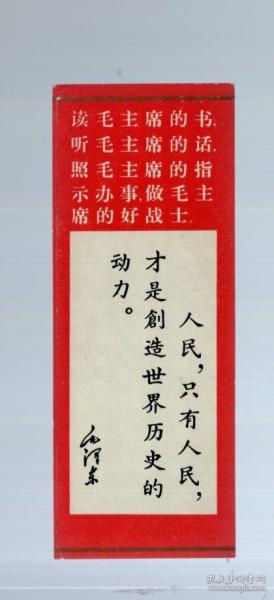 读毛主席的书，
听毛主席的话，
照毛主席的指
示办事，做毛主
席的好战士。
人民，只有人民，
才是創造世界历史的
动力。
毛泽东